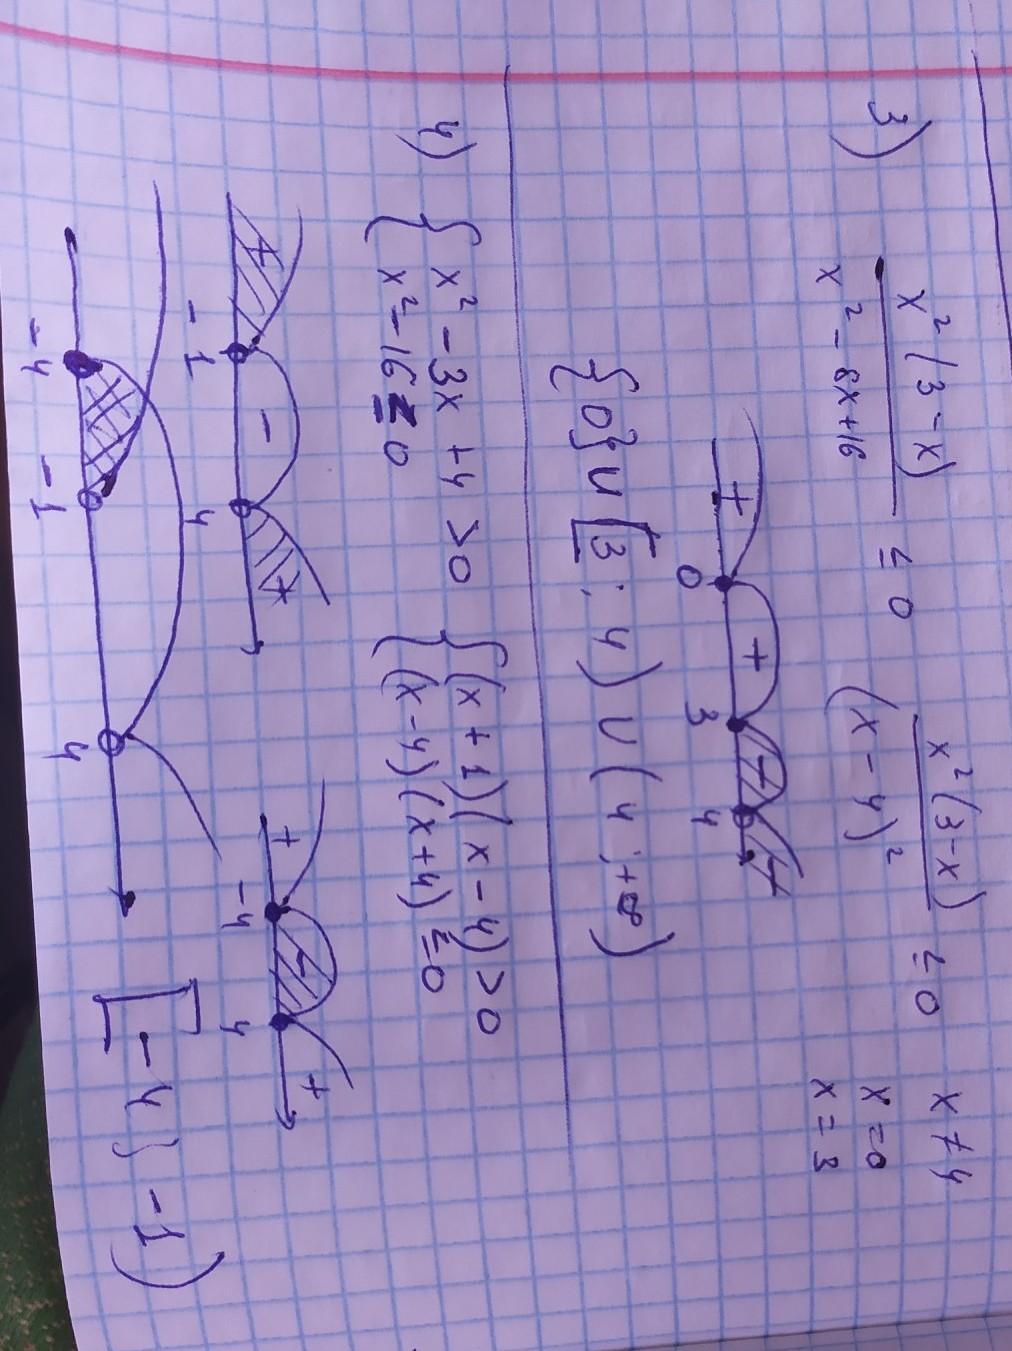 3) x²(3-x) / x² - 8x + 16 ≤ 0   x²(3-x) / (x-4)² ≤ 0   x ≠ 4
x = 0
x = 3
+ + - -
0 3 4
{0} ∪ [3; 4) ∪ (4; +∞)
4) { x² - 3x + 4 > 0   { (x + 1)(x - 4) > 0
x² - 16 ≤ 0   (x - 4)(x + 4) ≤ 0
+ - +   + - +
-1 4   -4 4
-4 -1 4   [-4; -1)